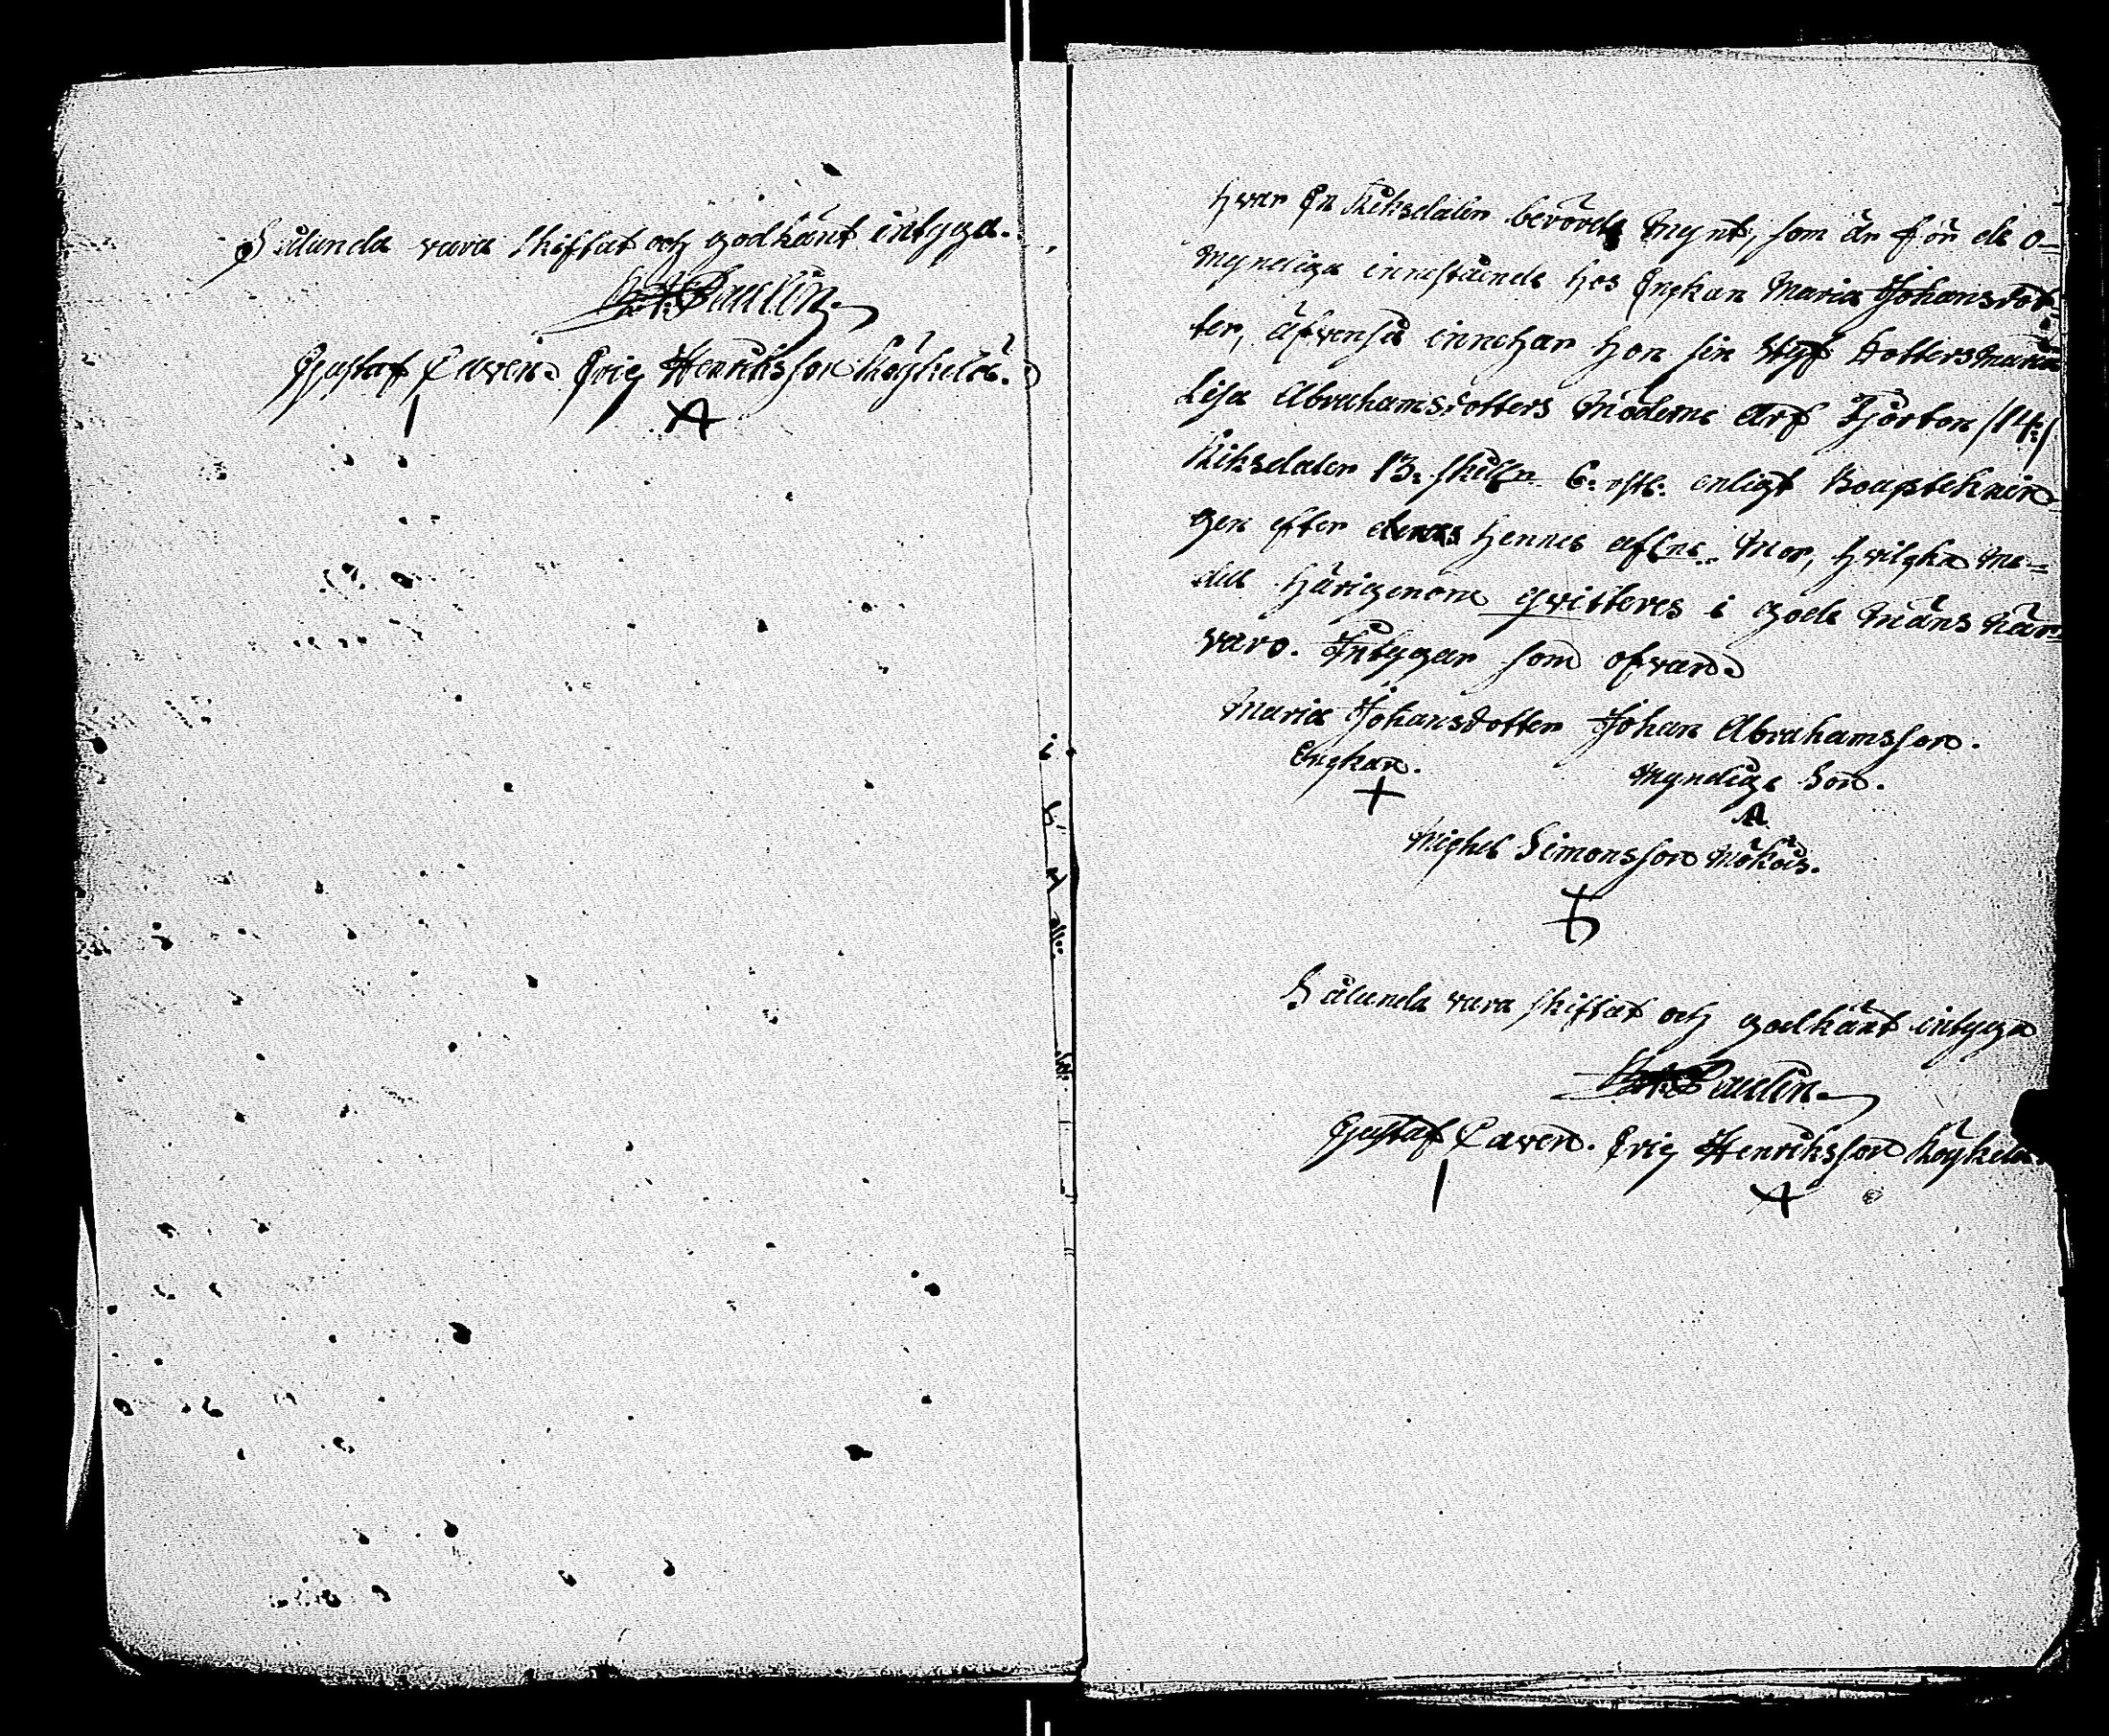 Sålunda vara skiftat och godkänt intyga.
Paulin.
Gustaf Caven. Eric Henriksson Köykelä.
hvar En Riksdaler berörde Mynt, som är för de o=
myndiga innestående hos Enkan Maria Johansdot
ter, äfvenså innehar hon sin Styf Dotters Maria
Lisa Abrahamsdotters Möderne Arf Fjorton /14:/
Riksdaler 13. skilln. 6. rst: enligt Boupteknin
gen efter hennes aflne. Mor, hvilcka me=
del härigenom qvitteres i gode Mäns när=
varo. Intygar som ofvan
Maria Johansdotter Johan Abrahamsson.
Enckan. Myndige Son.
Michel Simonsson
Sålunda vara skiftat och godkänt intyga
Paulin.
Gustaf Caven. Eric Henriksson Köykelä